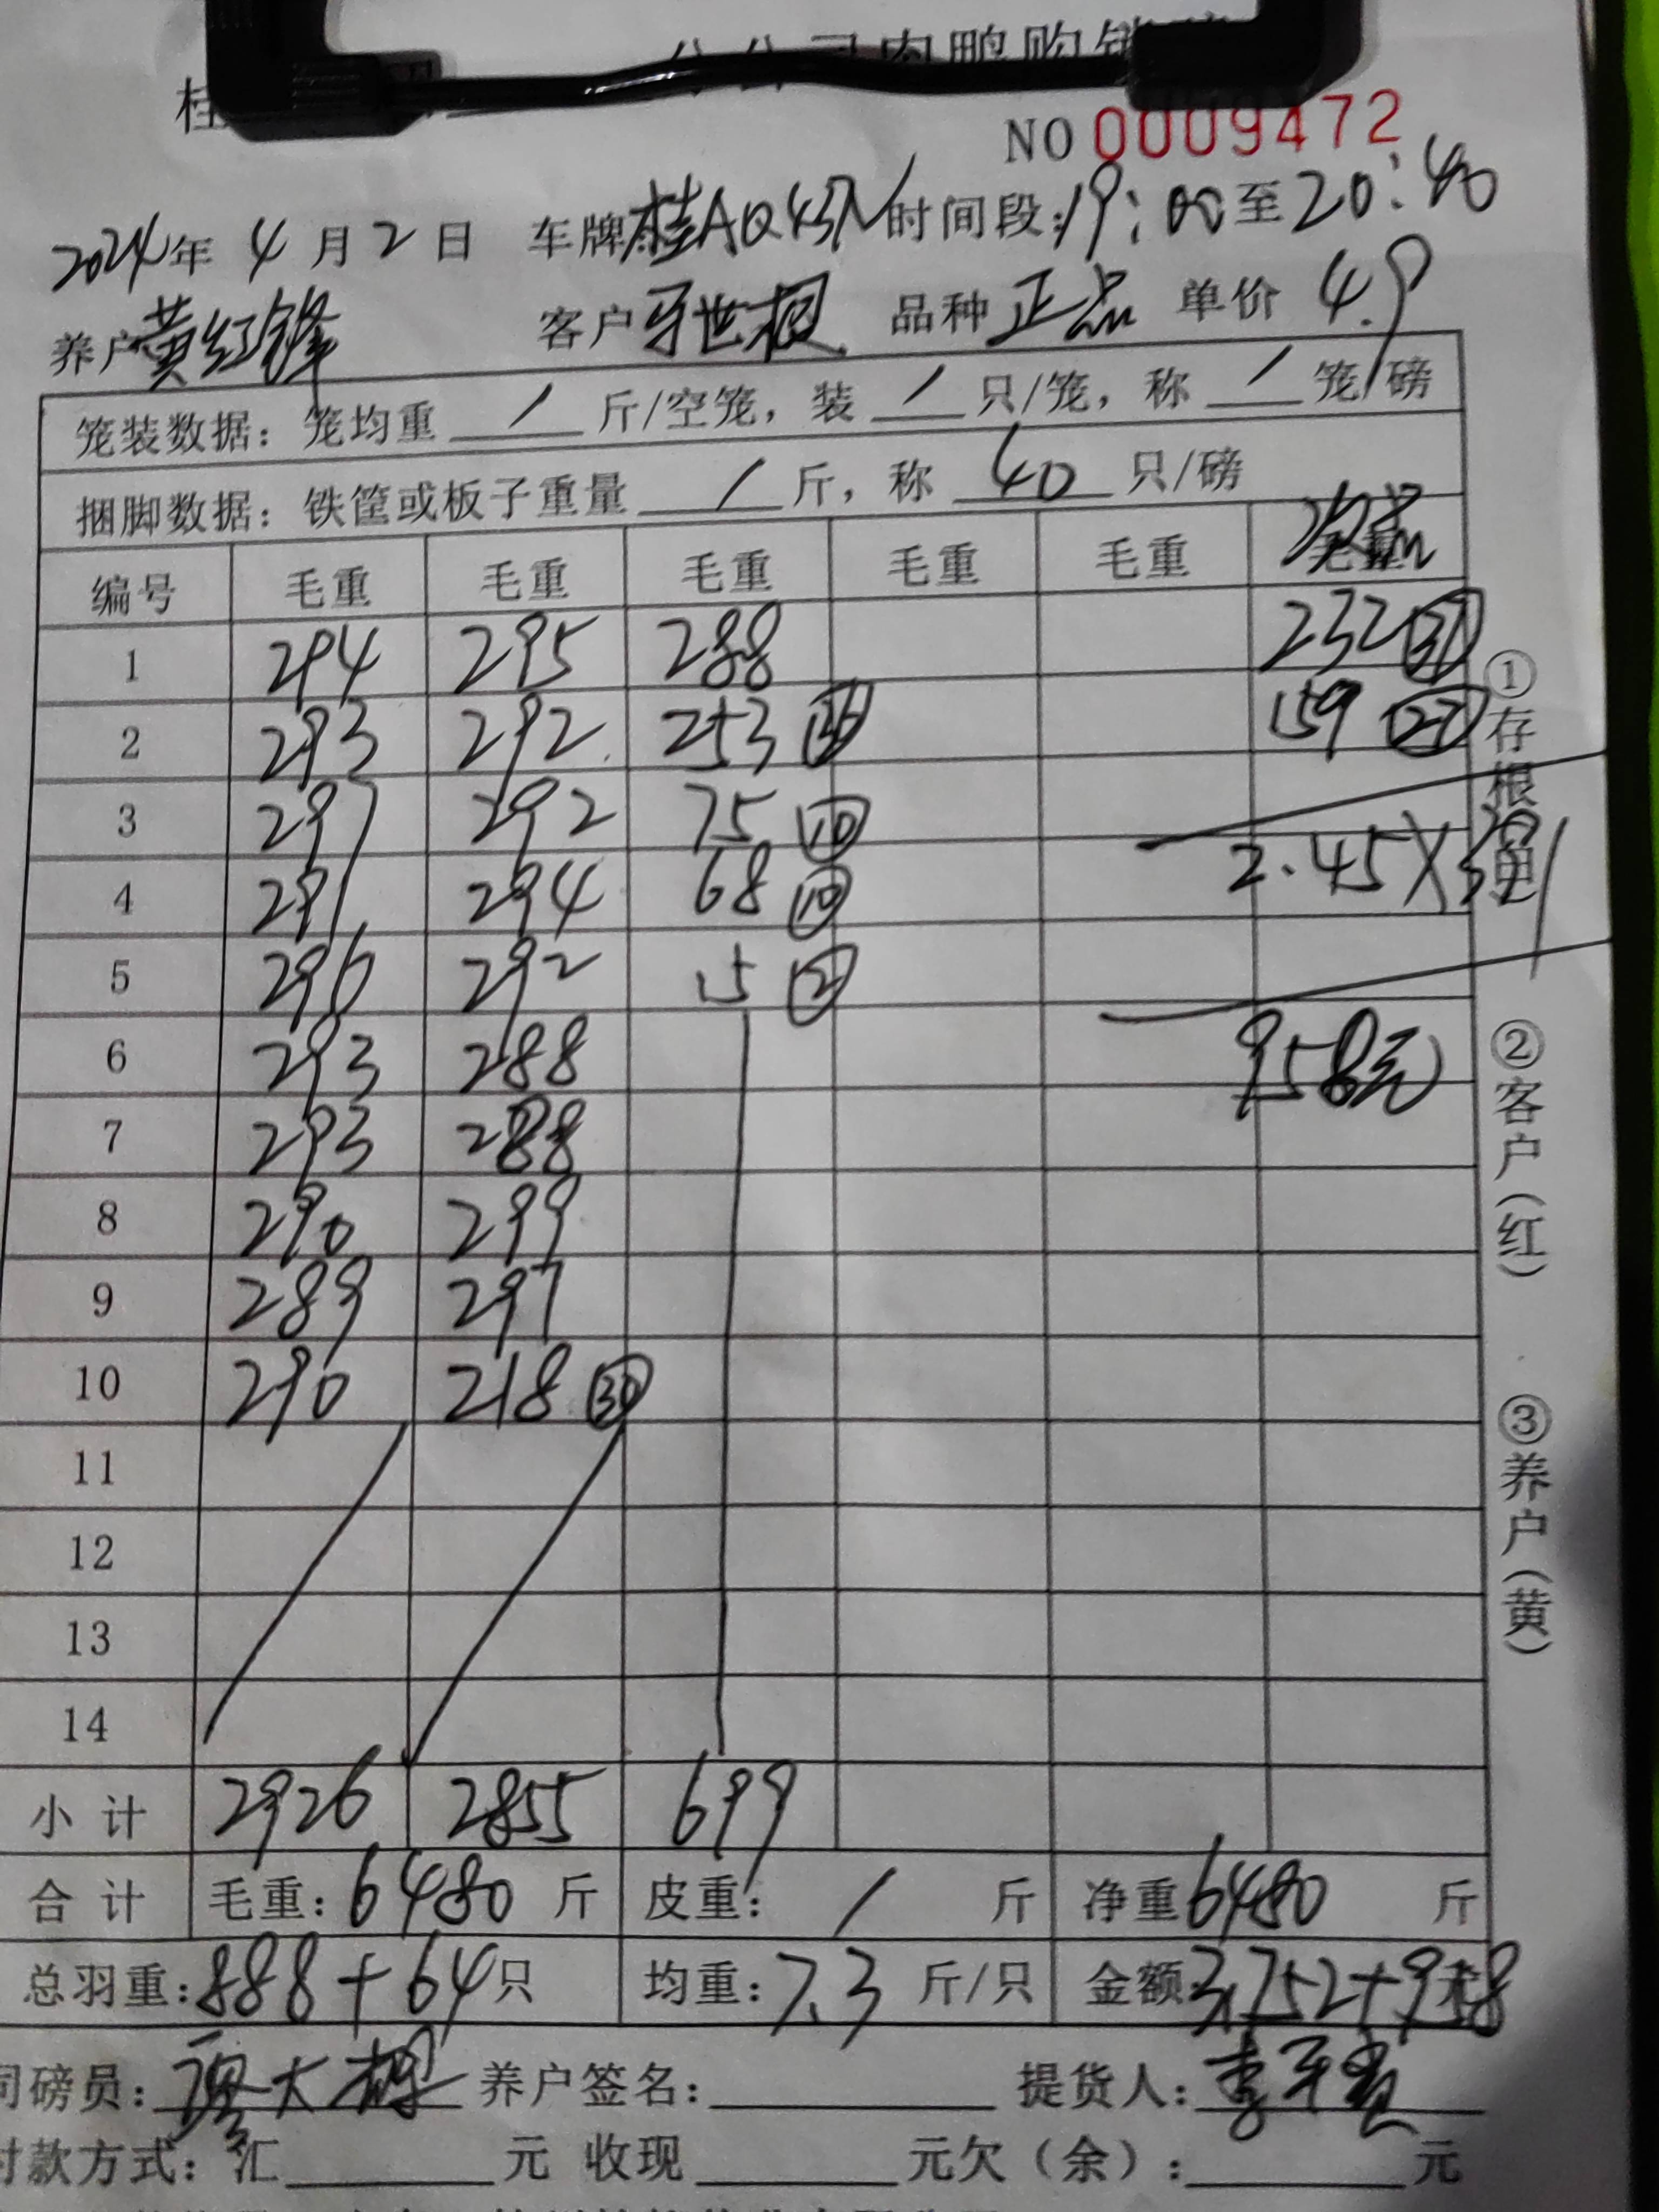 分公司肉鸭购销
桂
NO 0009472
2024年 4 月 2 日 车牌:桂AQ45 时间段:19:00至20:40
养户 黄红锋 客户 牙世根 品种 正品 单价 4.9
笼装数据：笼均重 / 斤/空笼，装 / 只/笼，称 / 笼/磅
捆脚数据：铁筐或板子重量 / 斤，称 40 只/磅
编号 毛重 毛重 毛重 毛重 毛重 次品
1 294 295 288 232 (37)
2 293 292 253 159 (27)
3 297 292 75 (10)
4 291 294 68 (10) 2.45×391
5 296 292 15 (2)
6 293 288 958元
7 293 288
8 290 299
9 289 297
10 290 218 (30)
11
12
13
14
小 计 2926 2855 699
合 计 毛重：6480 斤 皮重： / 斤 净重 6480 斤
总羽重：888+64只 均重：7.3 斤/只 金额 31752+958
司磅员： 廖大 养户签名： 提货人：李
付款方式：汇 元 收现 元欠（余）： 元
①存根
②客户（红）
③养户（黄）